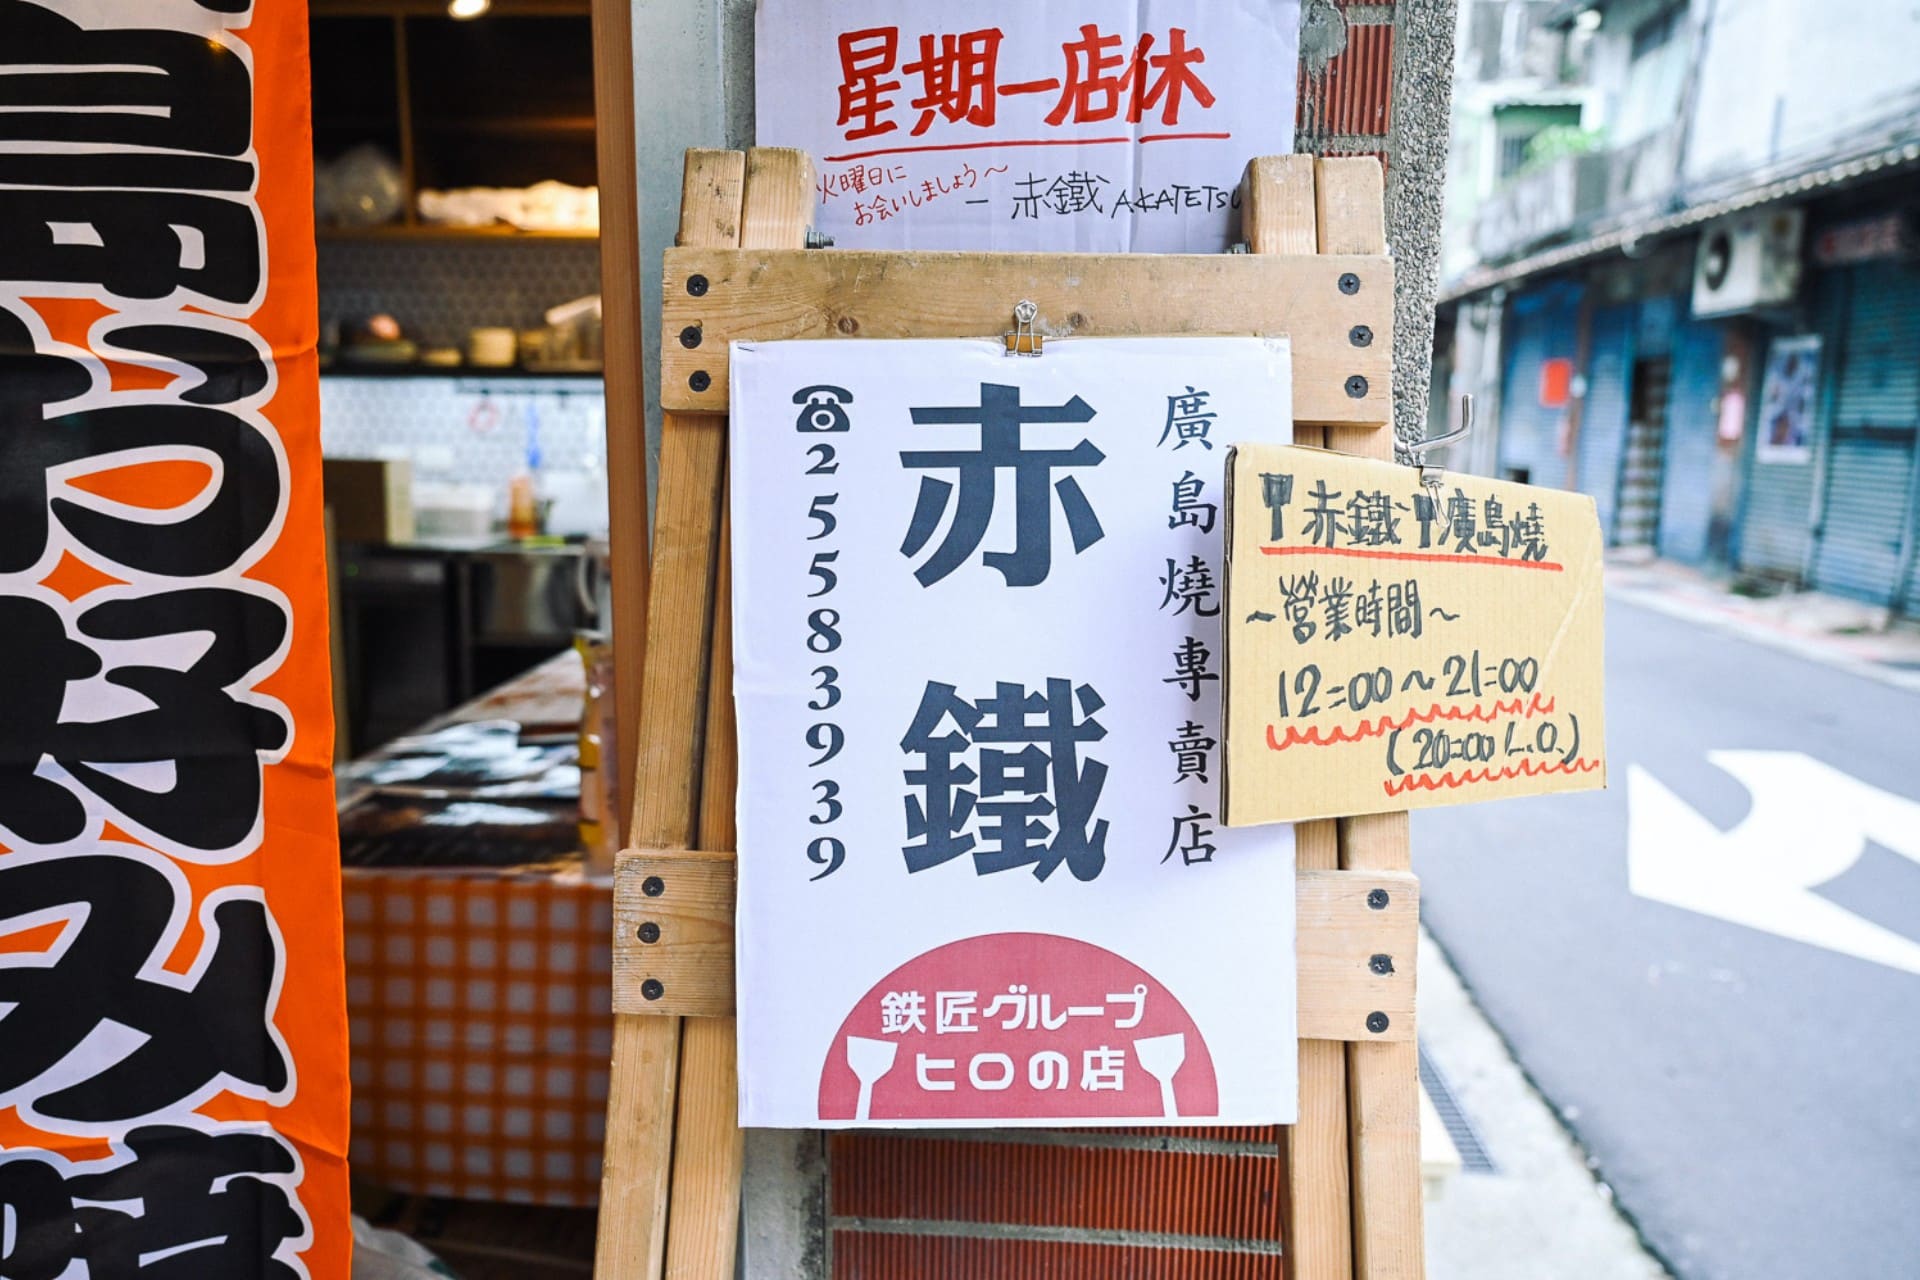 星期一店休
火曜日に
お会いしましょう〜
— 赤鐵 AKATETSU
廣島燒專賣店
赤鐵
☎25583939
鉄匠グループ
ヒロの店
赤鐵 廣島燒
~營業時間~
12:00~21:00
(20:00 L.O.)